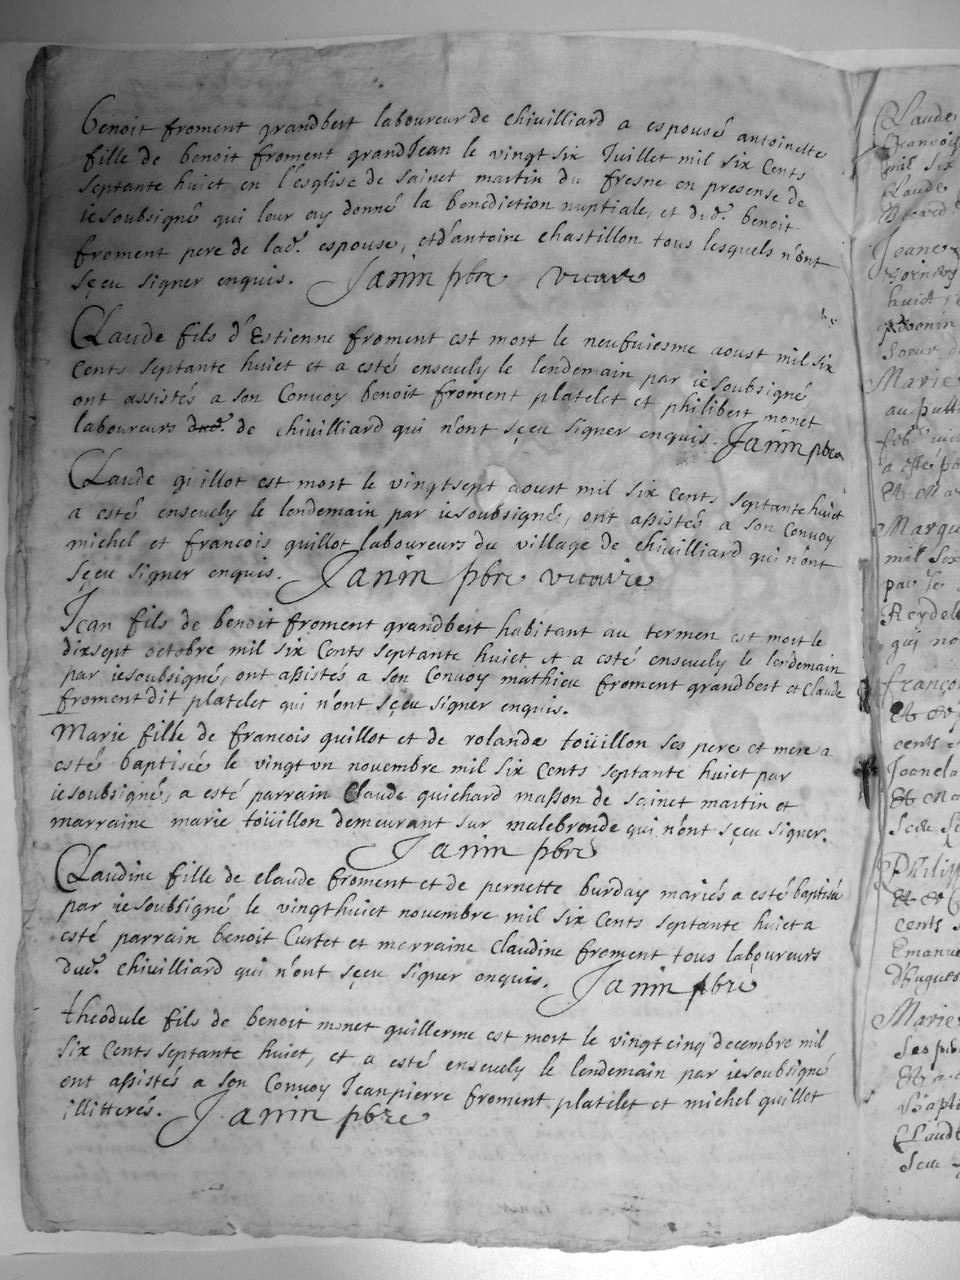 benoit froment grandbert laboureur de chivilliard a espousé antoinette
fille de benoit froment grandJean le vingt six Juillet mil six Cents
septante huict en l'esglise de sainct martin du fresne en presense de
ie soubsigné qui leur ay donné la benediction nuptiale, et dud.^t benoit
froment pere de lad.^e espouse, et d'antoine chastillon tous lesquels n'ont
sçeu signer enquis. Janin pbre vicaire
Claude fils d'Estienne froment est mort le neufuiesme aoust mil six
Cents septante huict et a esté enseuely le lendemain par ie soubsigné
ont assistés a son Convoy benoit froment platelet et philibert monet
laboureurs de chivilliard qui n'ont sçeu signer enquis. Janin pbre
Claude guillot est mort le vingtsept aoust mil six Cents septante huict
a esté enseuely le lendemain par ie soubsigné, ont assistés a son Convoy
michel et francois guillot laboureurs du village de chivilliard qui n'ont
sçeu signer enquis. Janin pbre vicaire
Jean fils de benoit froment grandbert habitant au termen est mort le
dixsept octobre mil six Cents septante huict et a esté enseuely le lendemain
par ie soubsigné, ont assistés a son Convoy mathieu froment grandbert et Claude
froment dit platelet qui n'ont sçeu signer enquis.
Marie fille de francois guillot et de rolande toüillon ses pere et mere a
esté baptisée le vingt vn novembre mil six Cents septante huict par
ie soubsigné, a esté parrain Claude guichard masson de sainct martin et
marraine marie toüillon demeurant sur malebronde qui n'ont sçeu signer.
Janin pbre
Claudine fille de claude froment et de pernette burday mariés a esté baptisée
par ie soubsigné le vingthuict novembre mil six Cents septante huict a
esté parrain benoit Curtet et marraine claudine froment tous laboureurs
dud.^t chivilliard qui n'ont sçeu signer enquis. Janin pbre
theodule fils de benoit monet guillerme est mort le vingtcinq decembre mil
six Cents septante huict, et a esté enseuely le lendemain par ie soubsigné
ont assistés a son Convoy Jeanpierre froment platelet et michel guillot
illitterés. Janin pbre